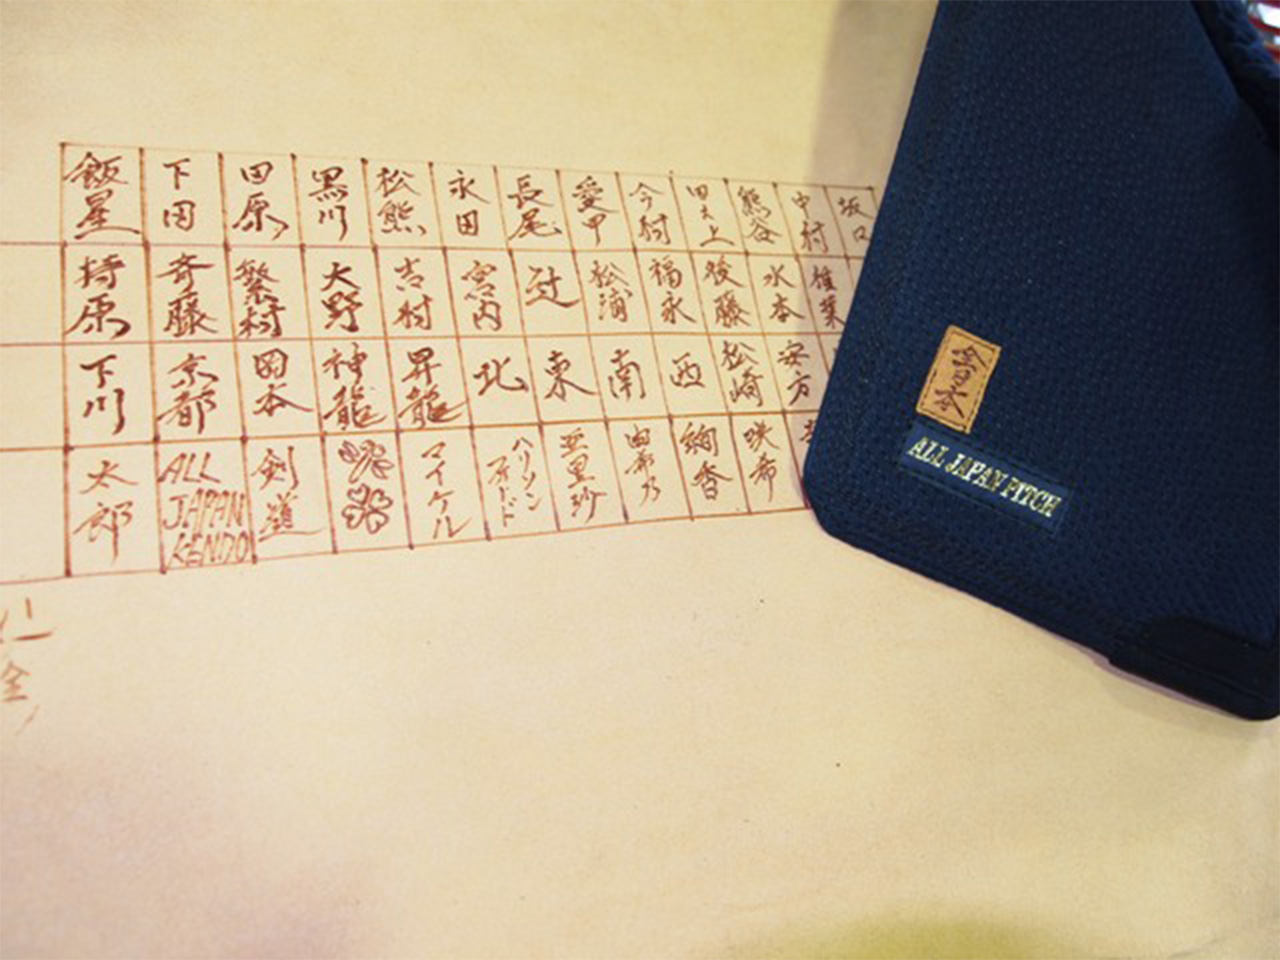 飯星 下田 田原 黒川 松熊 永田 長尾 愛甲 今村 田上 熊谷 中村 坂口
持原 斉藤 繁村 大野 吉村 宮内 辻 松浦 福永 後藤 水本 椎葉
下川 京都 岡本 神龍 昇龍 北 東 南 西 松崎 安方
太郎 ALL JAPAN KENDO 剣道 マイケル ハリソンフォード 亜里沙 由希乃 絢香 咲希
全日本
ALL JAPAN PITCH